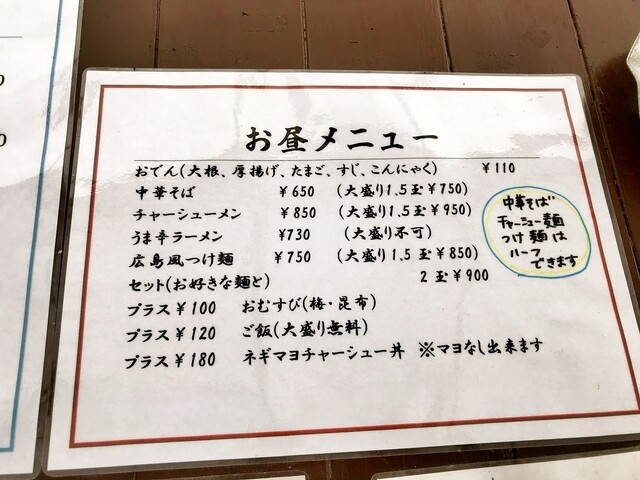 お昼メニュー
おでん(大根、厚揚げ、たまご、すじ、こんにゃく) ¥110
中華そば ¥650 (大盛り1.5玉¥750)
チャーシューメン ¥850 (大盛り1.5玉¥950)
うま辛ラーメン ¥730 (大盛り不可)
広島風つけ麺 ¥750 (大盛り1.5玉¥850)
2玉¥900
セット(お好きな麺と)
プラス¥100 おむすび(梅・昆布)
プラス¥120 ご飯(大盛り無料)
プラス¥180 ネギマヨチャーシュー丼 ※マヨなし出来ます
中華そば
チャーシュー麺
つけ麺は
ハーフ
できます